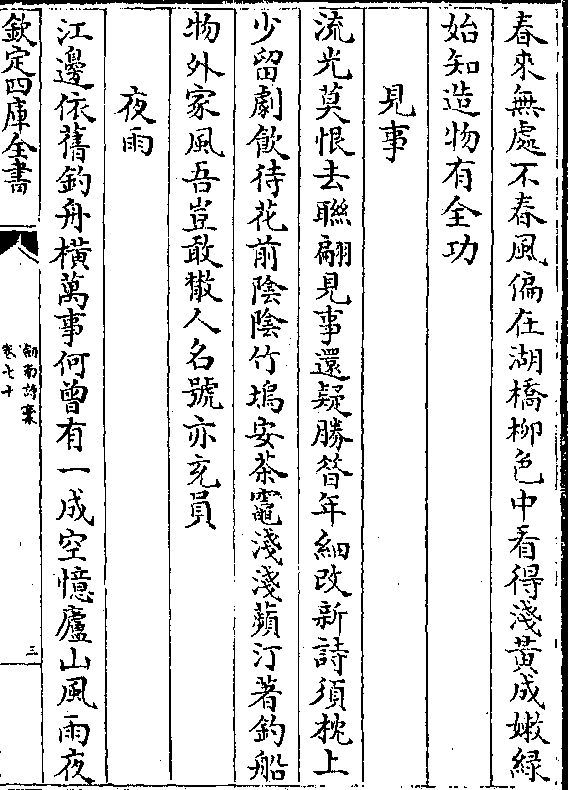 春來無處不春風偏在湖橋柳色中看得淺黃成嫩緑
始知造物有全功
見事
流光莫恨去聯翩見事還疑勝昝年細改新詩須枕上
少留劇飲待花前陰陰竹塢安茶竈淺淺蘋汀著釣船
物外家風吾豈敢散人名號亦充員
夜雨
江邊依舊釣舟橫萬事何曾有一成空憶廬山風雨夜
欽定四庫全書
劍南詩稾
卷七十
三